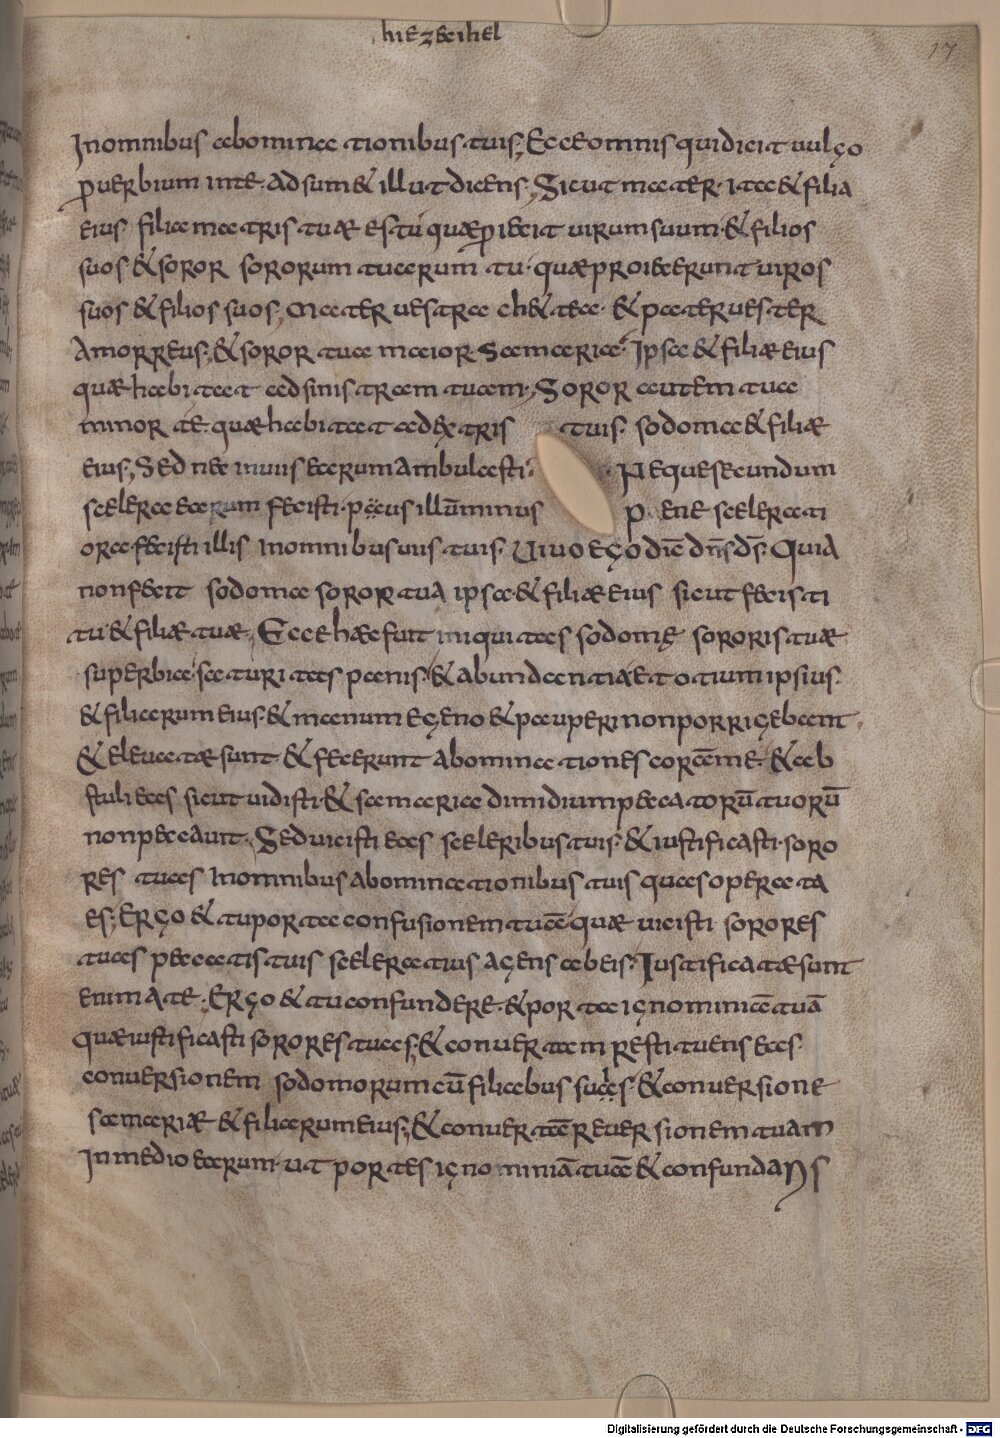 hiezecihel
17
In omnibus abominationibus tuis; Ecce omnis qui dicit vulgo
ꝓverbium in te. adsum& illut dicens; Sicut mater. ita & filia
eius filia matris tuæ es tu quæ ꝓiecit virum suum. & filios
suos & soror sororum tuarum tu. quæ proiecerunt viros
suos & filios suos; Mater vestra ch&tea. & pater vester
Amorreus; & soror tua maior Samaria. Ipsa & filiæ eius
quæ habitat ad sinistram tuam; Soror autem tua
minor te. quæ habitat ad dextris tuis. sodoma & filiæ
eius; Sed nec in viis earum ambulasti. Neque secundum
scelera earum fecisti. paucus illū minus pene scelerati
ora fecisti illis In omnibus viis tuis. Vivo ego diē dn̄s ds̄. Quia
non fecit sodoma soror tua ipsa & filiæ eius sicut fecisti
tu & filiæ tuæ. Ecce hæc fuit iniquitas sodomę sororis tuæ
superbia. saturitas panis. & abundantia et otium ipsius.
& filiarum eius. & manum egeno & pauperi non porrigebant.
& elevatæ sunt & fecerunt abominationes corā me. & ab
stuli eas sicut vidisti. & samaria dimidium peccatorū tuorū
non peccavit. Sed vicisti eas sceleribus tuis. & iustificasti. soro
res tuas In omnibus abominationibus tuis quas opera ta
es; Ergo & tu porta confusionem tuā quæ vicisti sorores
tuas peccatis tuis sceleratius agens ab eis. Iustificatæ sunt
enim a te. Ergo & tu confundere. & porta ignominiā tuā
quæ iustificasti sorores tuas; & convertam restituens eas.
conversionem sodomorum cū filiabus suas. & conversione
samariæ & filiarum eius; & convertā reversionem tuam
In medio earum. ut portes ignominiā tuā & confundaris
Digitalisierung gefördert durch die Deutsche Forschungsgemeinschaft - DFG